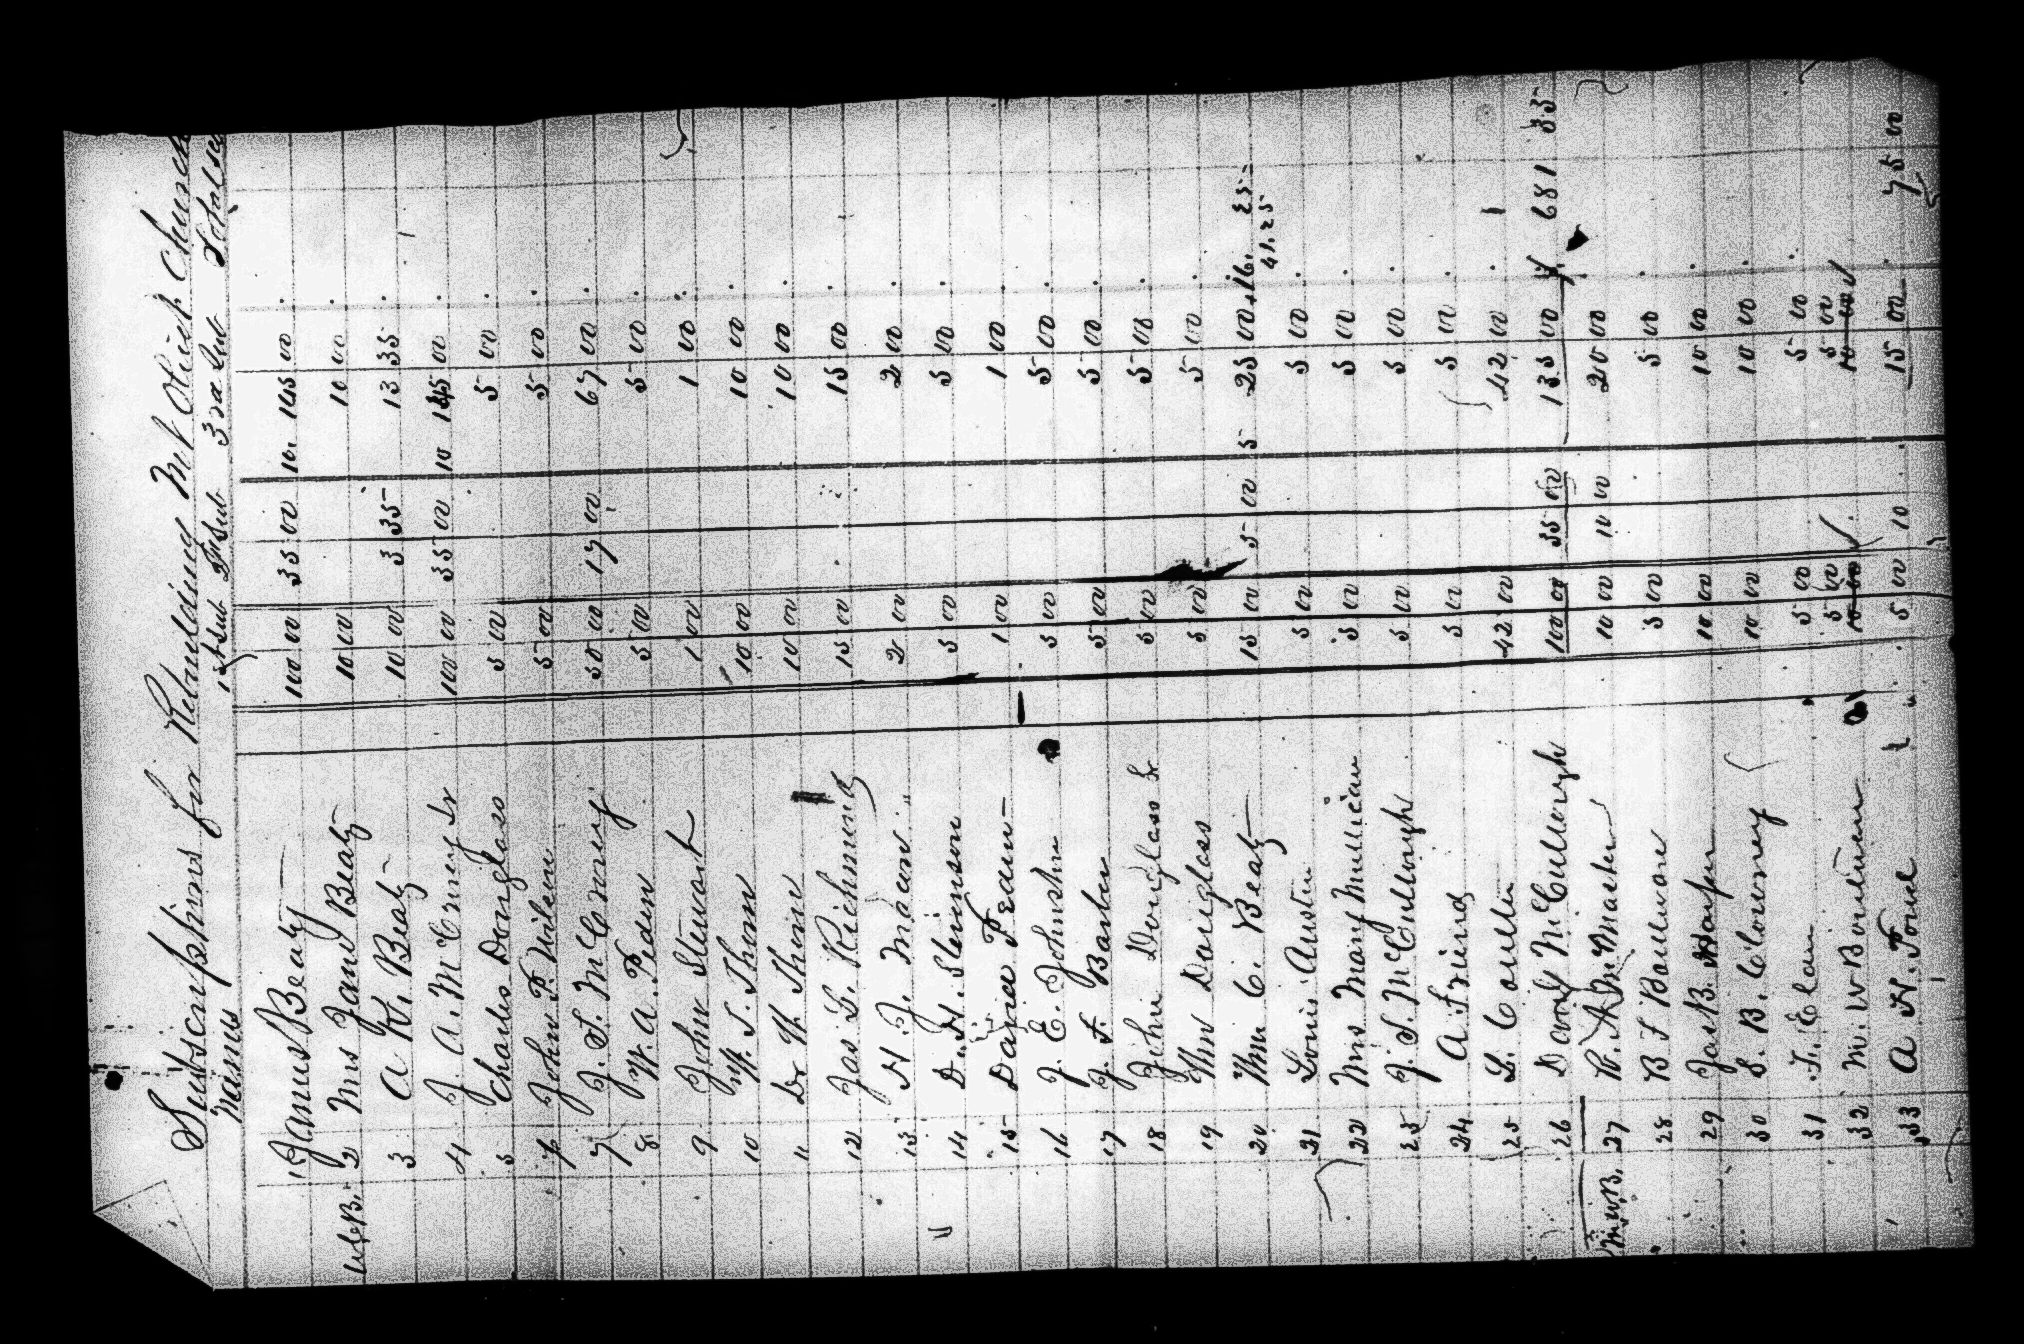 Subscriptions for Rebuilding Mt Olivet Church
Names 1st Sub 2d Sub 3rd Sub Totals
1 James Beaty 100 00 35 00 10. 145 00
W.C.B. 2 Mrs Jane Beaty 10 00 10 00
3 A. K. Beaty 10 00 3 35 13 35
4 J. A. McCrorey Sr 100 00 35 00 10 145 00
5 Charles Douglass 5 00 5 00
6 John P. Wilson 5 00 5 00
7 J. S. McCrorey 50 00 17 00 67 00
8 W. A. Peden 5 00 5 00
9 John Stewart 1 00 1 00
10 W. S. Thorn 10 00 10 00
11 Dr W. Thorn 10 00 10 00
12 Jas L. Richmond 15 00 15 00
13 H. J. Macon 2 00 2 00
14 D. H. Stevenson 5 00 5 00
15 David 1 00 1 00
16 J. E. Johnston 5 00 5 00
17 J. F. Barber 5 00 5 00
18 John Douglass Sr 5 00 5 00
19 Wm Douglass 5 00 5 00
20 Wm C. Beaty 15 00 5 00 5 25 00 16. 25
41.25
21 Louis Austin 5 00 5 00
22 Mrs Mary Mullican 5 00 5 00
23 J. S. McCullough 5 00 5 00
24 A Friend 5 00 5 00
25 L. Coulter 42 00 42 00
26 David McCullough 100 00 35 00 135 00 681 35
M.W.B. 27 R. A. McMaster 10 00 10 00 20 00
28 B F Boulware 5 00 5 00
29 Jas B. Harper 10 00 10 00
30 S. B. Clowney 10 00 10 00
31 F. Elam 5 00 5 00
5 00 5 00
32 M. W Boulware 10 00 10 00
33 A. H. 5 00 10 15 00 75 00